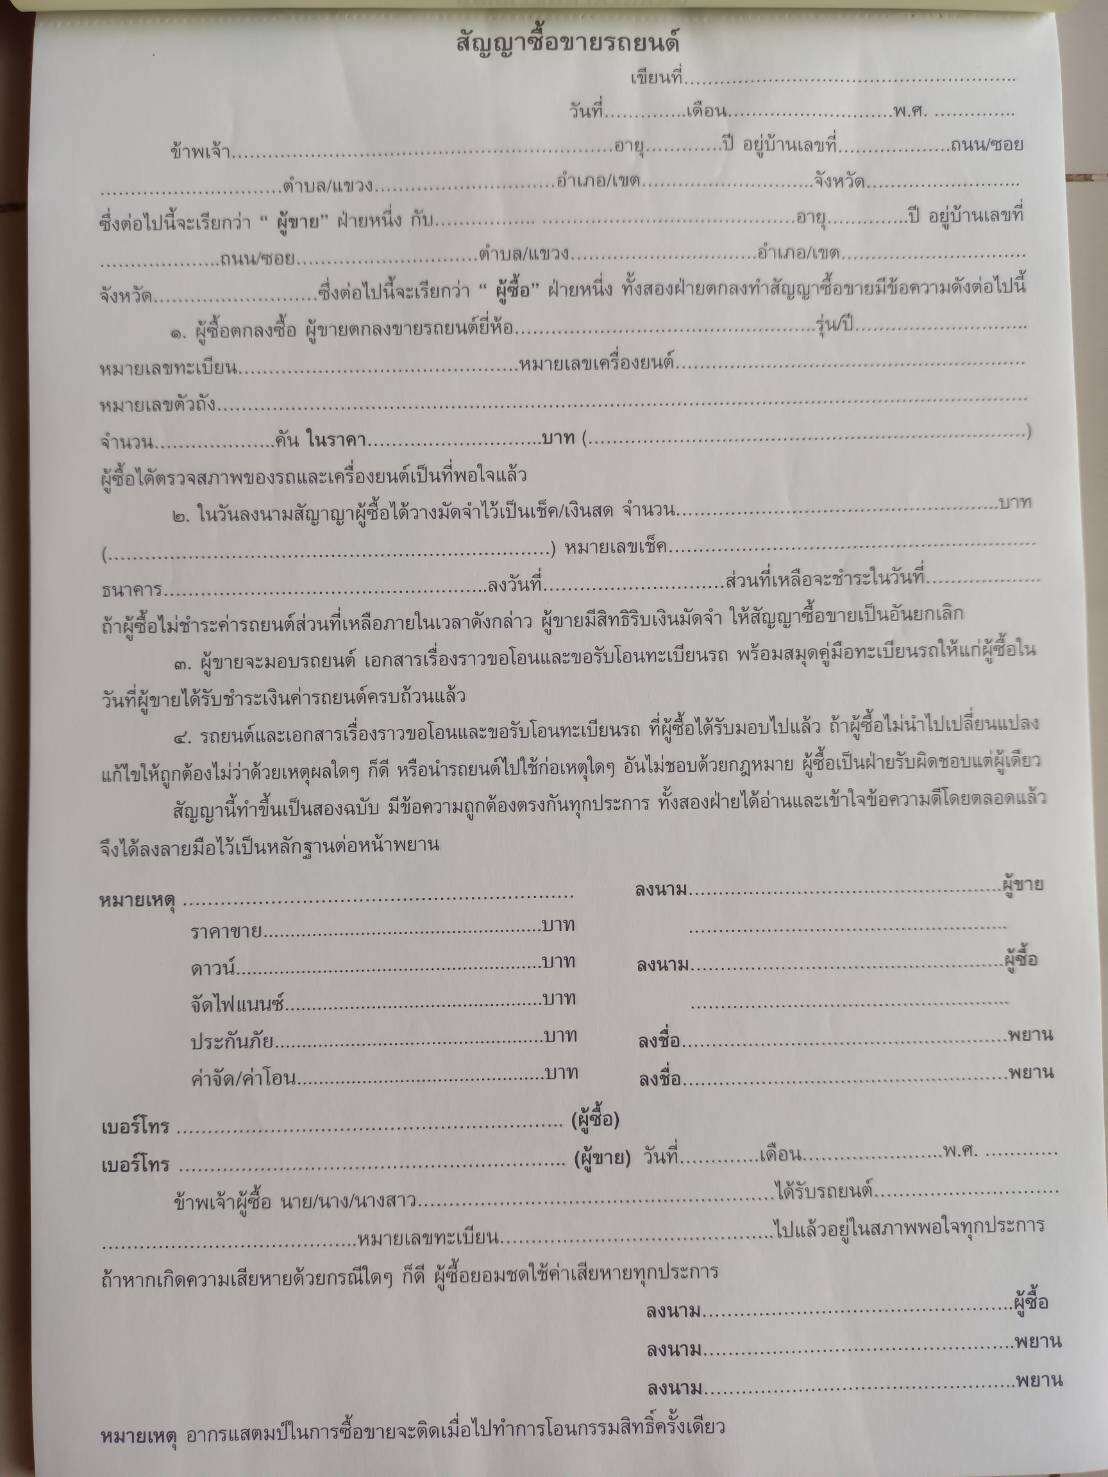 สัญญาซื้อขายรถยนต์
เขียนที่............................................................
วันที่..............เดือน............................พ.ศ. ..............
ข้าพเจ้า................................................................อายุ.............ปี อยู่บ้านเลขที่...................ถนน/ซอย
...............................ตำบล/แขวง...............................อำเภอ/เขต.............................จังหวัด..........................
ซึ่งต่อไปนี้จะเรียกว่า “ ผู้ขาย” ฝ่ายหนึ่ง กับ................. ...........................................อายุ..............ปี อยู่บ้านเลขที่
....................ถนน/ซอย...............................ตำบล/แขวง................................อำเภอ/เขต................................
จังหวัด............................ซึ่งต่อไปนี้จะเรียกว่า “ ผู้ซื้อ” ฝ่ายหนึ่ง ทั้งสองฝ่ายตกลงทำสัญญาซื้อขายมีข้อความดังต่อไปนี้
๑. ผู้ซื้อตกลงซื้อ ผู้ขายตกลงขายรถยนต์ยี่ห้อ...................................................รุ่น/ปี..............................
หมายเลขทะเบียน................................................หมายเลขเครื่องยนต์............................................................
หมายเลขตัวถัง..........................................................................................................................................
จำนวน....................คัน ในราคา..............................บาท (..........................................................................)
ผู้ซื้อได้ตรวจสภาพของรถและเครื่องยนต์เป็นที่พอใจแล้ว
๒. ในวันลงนามสัญาญาผู้ซื้อได้วางมัดจำไว้เป็นเช็ค/เงินสด จำนวน......................................................บาท
(...........................................................................) หมายเลขเช็ค..............................................................
ธนาคาร.......................................................ลงวันที่...............................ส่วนที่เหลือจะชำระในวันที่....................
ถ้าผู้ซื้อไม่ชำระค่ารถยนต์ส่วนที่เหลือภายในเวลาดังกล่าว ผู้ขายมีสิทธิริบเงินมัดจำ ให้สัญญาซื้อขายเป็นอันยกเลิก
๓. ผู้ขายจะมอบรถยนต์ เอกสารเรื่องราวขอโอนและขอรับโอนทะเบียนรถ พร้อมสมุดคู่มือทะเบียนรถให้แก่ผู้ซื้อใน
วันที่ผู้ขายได้รับชำระเงินค่ารถยนต์ครบถ้วนแล้ว
๔. รถยนต์และเอกสารเรื่องราวขอโอนและขอรับโอนทะเบียนรถ ที่ผู้ซื้อได้รับมอบไปแล้ว ถ้าผู้ซื้อไม่นำไปเปลี่ยนแปลง
แก้ไขให้ถูกต้องไม่ว่าด้วยเหตุผลใดๆ ก็ดี หรือนำรถยนต์ไปใช้ก่อเหตุใดๆ อันไม่ชอบด้วยกฎหมาย ผู้ซื้อเป็นฝ่ายรับผิดชอบแต่ผู้เดียว
สัญญานี้ทำขึ้นเป็นสองฉบับ มีข้อความถูกต้องตรงกันทุกประการ ทั้งสองฝ่ายได้อ่านและเข้าใจข้อความดีโดยตลอดแล้ว
จึงได้ลงลายมือไว้เป็นหลักฐานต่อหน้าพยาน
หมายเหตุ ................................................................. ลงนาม.....................................................ผู้ขาย
ราคาขาย...............................................บาท ......................................................
ดาวน์....................................................บาท ลงนาม.....................................................ผู้ซื้อ
จัดไฟแนนซ์............................................บาท ......................................................
ประกันภัย..............................................บาท ลงชื่อ.......................................................พยาน
ค่าจัด/ค่าโอน..........................................บาท ลงชื่อ.......................................................พยาน
เบอร์โทร ................................................................. (ผู้ซื้อ)
เบอร์โทร ................................................................. (ผู้ขาย) วันที่.............เดือน........................พ.ศ. ............
ข้าพเจ้าผู้ซื้อ นาย/นาง/นางสาว............................................................ได้รับรถยนต์...............................
...........................................หมายเลขทะเบียน..............................................ไปแล้วอยู่ในสภาพพอใจทุกประการ
ถ้าหากเกิดความเสียหายด้วยกรณีใดๆ ก็ดี ผู้ซื้อยอมชดใช้ค่าเสียหายทุกประการ
ลงนาม.....................................................ผู้ซื้อ
ลงนาม.....................................................พยาน
ลงนาม.....................................................พยาน
หมายเหตุ อากรแสตมป์ในการซื้อขายจะติดเมื่อไปทำการโอนกรรมสิทธิ์ครั้งเดียว